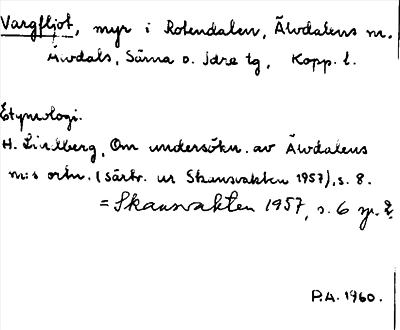 Vargfljot, myr i Rotendalen, Älvdalens sn.
Älvdals, Särna o. Idre tg, Kopp. l.
Etymologi.
H. Lindberg, Om undersökn. av Älvdalens
sn:s ortn. (särtr. ur Skansvakten 1957), s. 8.
= Skansvakten 1957, s. 6 sp. 2.
P.A. 1960.